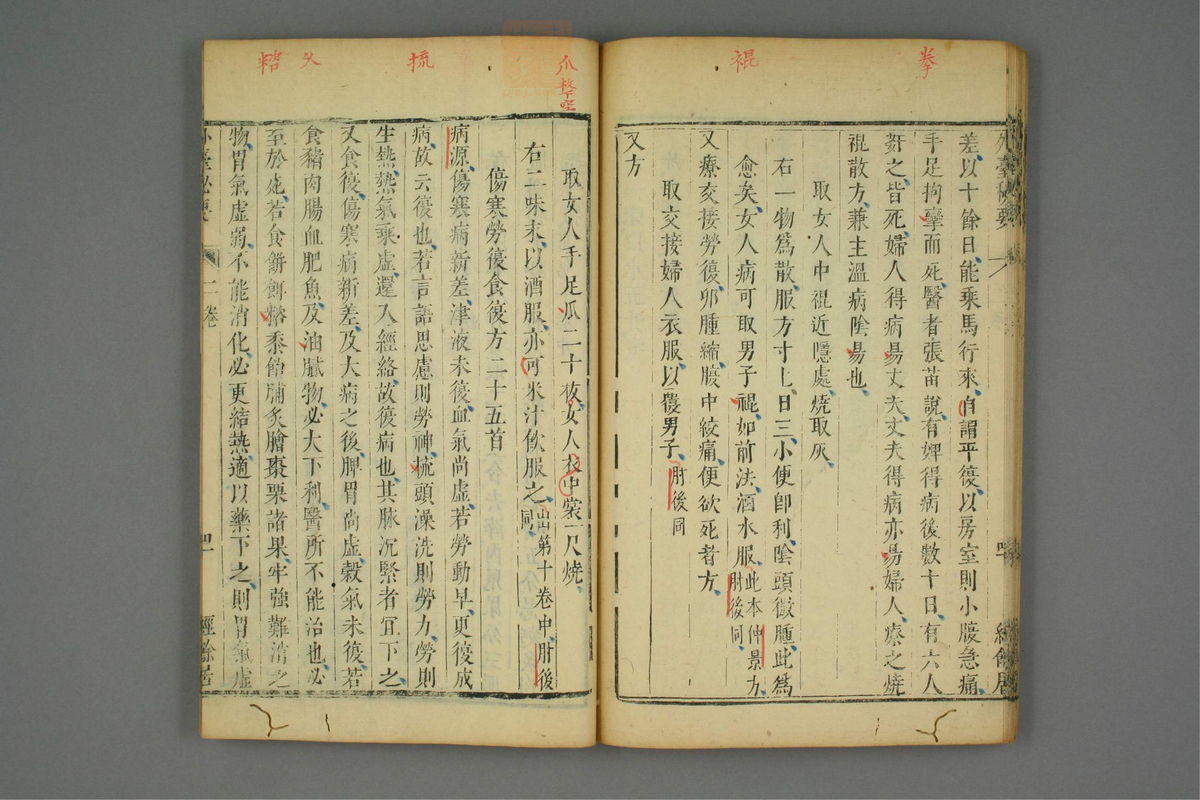 拳
裩
爪
梳
又
糉
外臺秘要
差以十餘日能乘馬行來自謂平復以房室則小腹急痛
手足拘攣而死醫者張苗說有婢得病後數十日有六人
姧之皆死婦人得病易丈夫丈夫得病亦易婦人療之燒
裩散方兼主溫病陰易也
取女人中裩近隱處燒取灰
右一物爲散服方寸匕日三小便卽利陰頭微腫此爲
愈矣女人病可取男子裩如前法酒水服此本仲景方
肘後同
又療交接勞復卵腫縮腹中絞痛便欲死者方
取交接婦人衣服以覆男子肘後同
又方
取女人手足瓜二十枚女人衣中裳一尺燒
右二味末以酒服亦可米汁飮服之出第十卷中肘後
同
傷寒勞復食復方二十五首
病源傷寒病新差津液未復血氣尚虛若勞動早更復成
病故云復也若言語思慮則勞神梳頭澡洗則勞力勞則
生熱熱氣乘虛還入經絡故復病也其脉沉緊者宜下之
又食復傷寒病新差及大病之後脾胃尚虛穀氣未復若
食豬肉腸血肥魚及油膩物必大下利醫所不能治也必
至於死若食餅餌糉黍飴脯炙膾棗栗諸果牢強難消之
物胃氣虛弱不能消化必更結熱適以藥下之則胃氣虛
外臺秘要
二卷
經餘居